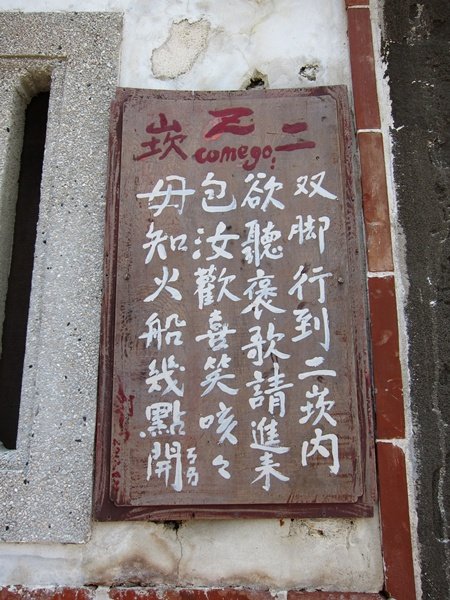 二 Z 崁
comego!
双脚行到二崁內
欲聽褒歌請進來
包汝歡喜笑咳々
毋知火船幾點開
ㄎㄞ